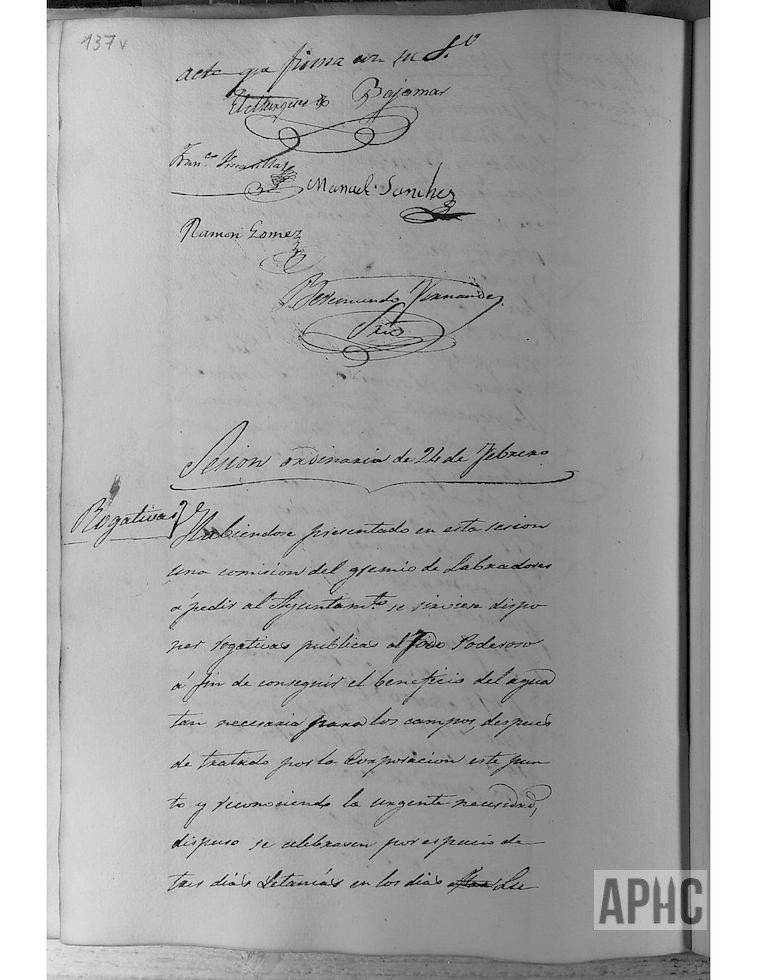 137v
acta que firma con su S.ª
El Marques de Bajamar
Fran.co
Manuel Sanchez
Ramon Gomez
Beremundo Fernandez
Srio
Sesion ordinaria de 24 de Febrero
Rogativas
Habiendose presentado en esta sesion
una comision del gremio de Labradores
á pedir al Ayuntam.to se sirviese dispo
ner rogativas publicas al Todo Poderoso
á fin de conseguir el beneficio del agua
tan necesaria para los campos, despues
de tratado por la Corporacion este pun
to y reconociendo la urgente necesidad,
dispuso se celebrasen por espacio de
tres dias Letanías en los dias Lue
APHC